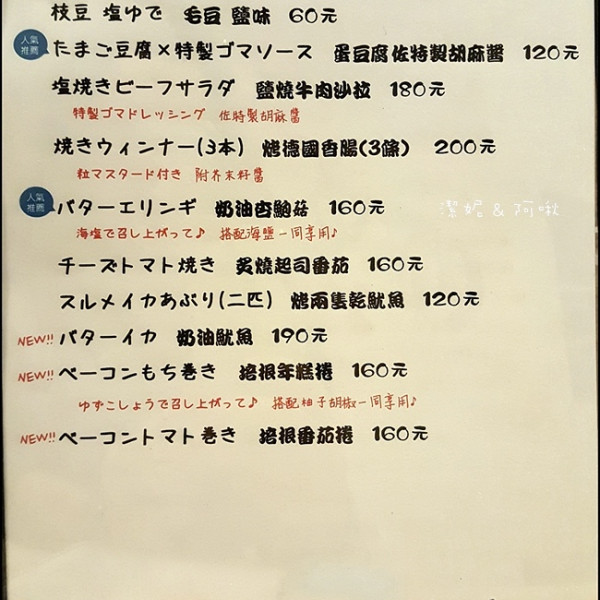 枝豆 塩ゆで 毛豆 鹽味 60元
人氣推薦 たまご豆腐×特製ゴマソース 蛋豆腐佐特製胡麻醬 120元
塩焼きビーフサラダ 鹽燒牛肉沙拉 180元
特製ゴマドレッシング 佐特製胡麻醬
焼きウィンナー(3本) 烤德國香腸(3條) 200元
粒マスタード付き 附芥末籽醬
人氣推薦 バターエリンギ 奶油杏鮑菇 160元
潔妮&阿啾
海塩で召し上がって♪ 搭配海鹽一同享用♪
チーズトマト焼き 炙燒起司番茄 160元
スルメイカあぶり(二匹) 烤兩隻乾魷魚 120元
NEW!! バターイカ 奶油魷魚 190元
NEW!! ベーコンもち巻き 培根年糕捲 160元
ゆずこしょうで召し上がって♪ 搭配柚子胡椒一同享用♪
NEW!! ベーコントマト巻き 培根番茄捲 160元